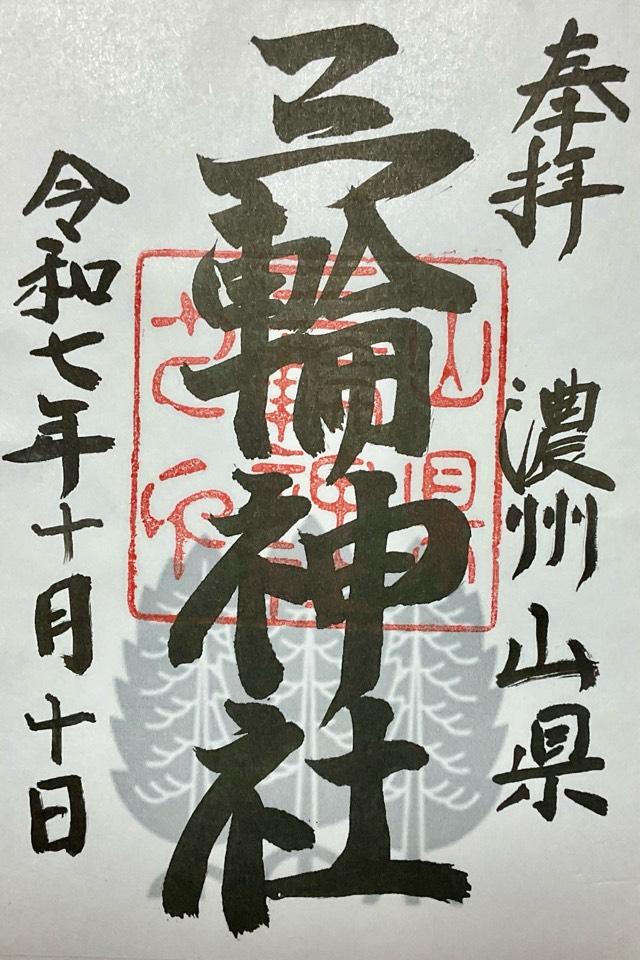 奉拝
濃州山県
三輪神社
令和七年十月十日